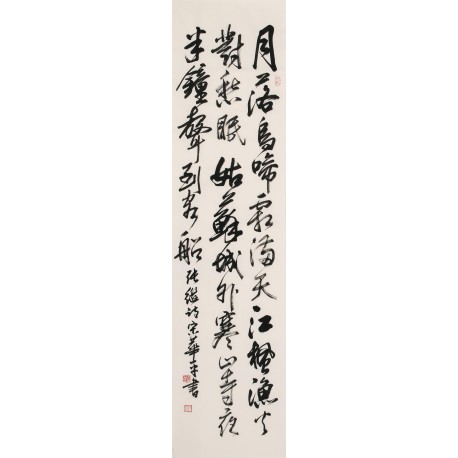 月落烏啼霜滿天江楓漁火
對愁眠姑蘇城外寒山寺夜
半鐘聲到客船張繼詩宋華平書